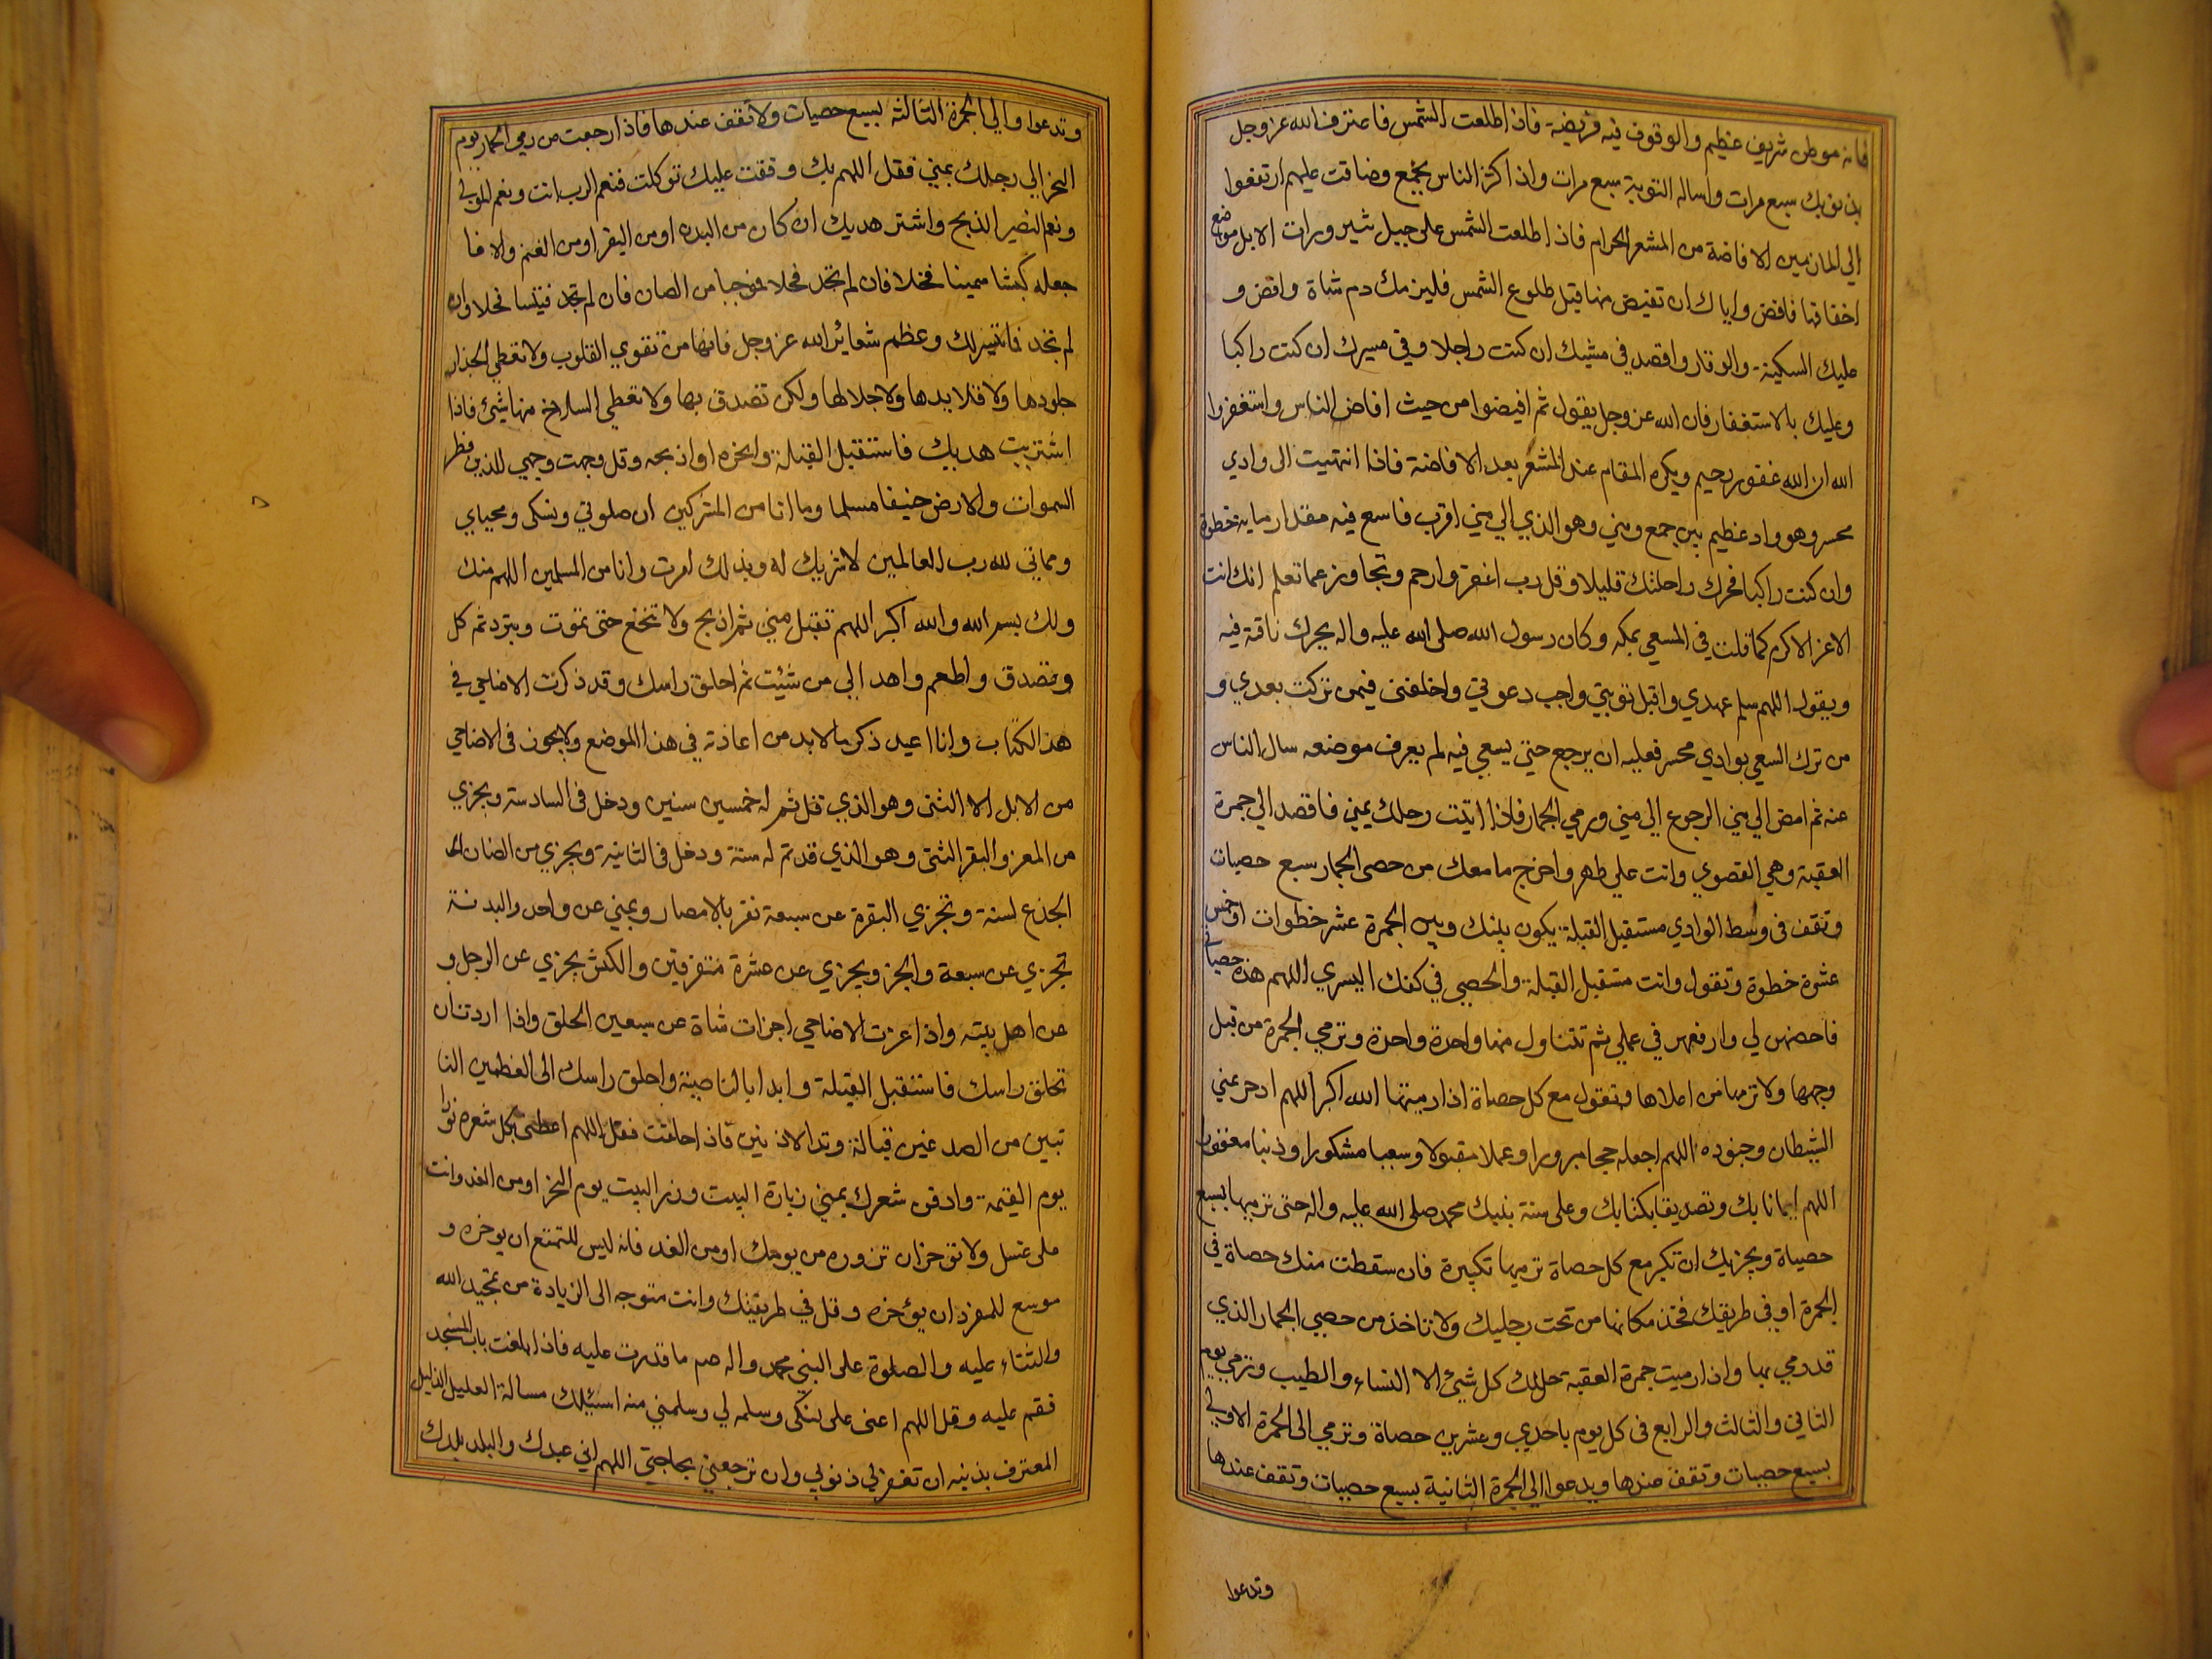 فانه موطن شريف عظيم والوقوف فيه فريضة فاذا طلعت الشمس فاعترف الله عز وجل
بذنوبك سبع مرات واساله التوبة سبع مرات واذا كثر الناس بجمع وضاقت عليهم ارتفعوا
الي المازمين الافاضة من المشعر الحرام فاذا طلعت الشمس على جبل ثبير ورات الابل مواضع
اخفافها فافض واياك ان تفيض منها قبل طلوع الشمس فليزمك دم شاة وافض و
عليك السكينة والوقار واقصد في مشيك ان كنت راجلا وفي مسيرك ان كنت راكبا
وعليك بالاستغفار فان الله عز وجل يقول ثم افيضوا من حيث افاض الناس واستغفروا
الله ان الله غفور رحيم ويكره المقام عند المشعر بعد الافاضة فاذا انتهيت الى وادي
محسر وهو واد عظيم بين جمع ومني وهو الذي الي مني اقرب فاسع فيه مقدار ماية خطوة
وان كنت راكبا فحرك راحلتك قليلا وقل رب اغفر وارحم وتجاوز عما تعلم انك انت
الاعز الاكرم كما قلت في المسعي بمكه وكان رسول الله صلى الله عليه واله يحرك ناقة فيه
ويقول اللهم سلم عهدي واقبل توبتي واجب دعوتي واخلفني فيمن تركت بعدي و
من ترك السعي بوادي محسر فعليه ان يرجع حتي يسعي فيه لم يعرف موضعه سال الناس
عنه ثم امض الي مني الرجوع الي مني ورمي الجمار فاذا اتيت رحلك بمني فاقصد الي جمرة
العقبة وهي القصوي وانت علي طهر واخرج ما معك من حصى الجمار سبع حصيات
وتقف في وسط الوادي مستقبل القبلة يكون بينك وبين الجمرة عشر خطوات او خمس
عشرة خطوة وتقول وانت مستقبل القبلة والحصي في كفك اليسري اللهم هذه حصياتي
فاحصهن لي وارفعهن في عملي ثم تتناول منها واحدة واحدة وترمي الجمرة من قبل
وجهها ولا ترمها من اعلاها وتقول مع كل حصاة اذا رميتها الله اكبر اللهم ادحر عني
الشيطان وجنوده اللهم اجعله حجا مبرورا وعملا مقبولا وسعيا مشكورا وذنبا مغفورا
اللهم ايمانا بك وتصديقا بكتابك وعلى سنة نبيك محمد صلى الله عليه واله حتى ترميها بسبع
حصياة ويجزيك ان تكبر مع كل حصاة ترميها تكبيرة فان سقطت منك حصاة في
الجمرة او في طريقك فخذ مكانها من تحت رجليك ولا تاخذ من حصي الجمار الذي
قد رمي بها واذا رميت جمرة العقبة حل لك كل شيئ الا النساء والطيب وترمي يوم
الثاني والثالث والرابع في كل يوم باحدي وعشرين حصاة وترمي الى الجمرة الاولي
بسبع حصيات وتقف عندها ويدعوا الي الجمرة الثانية بسبع حصيات وتقف عندها
وتدعوا
وتدعوا والي الجمرة الثالثه بسبع حصيات ولا تقف عندها فاذا رجعت من رمي الجمار يوم
النحر الي رحلك بمني فقل اللهم بك وثقت عليك توكلت فنعم الرب انت ونعم المولي
ونعم النصير الذبح واشتر هديك ان كان من البدن او من البقر او من الغنم والا فا
جعله كبشا سمينا فحلا فان لم تجد فحلا فموجبا من الضان فان لم تجد فتيسا فحلا وان
لم تجد فما تيسر لك وعظم شعائر الله عز وجل فانها من تقوي القلوب ولا تعطي الجزار
جلودها ولا قلايدها ولا جلالها ولكن تصدق بها ولا تعطي السلاخ منها شيئ فاذا
اشتريت هديك فاستقبل القبلة وانحره او اذبحه وقل وجهت وجهي للذي فطر
السموات والارض حنيفا مسلما وما انا من المشركين ان صلوتي ونسكى ومحياي
ومماتي لله رب العالمين لا شريك له وبذلك امرت وانا من المسلمين اللهم منك
ولك بسم الله والله اكبر اللهم تقبل مني ثم اذبح ولا تنخع حتى تموت وتبرد ثم كل
وتصدق واطعم واهد الي من شئت ثم احلق راسك وقد ذكرت الاضاحي في
هذا الكتاب وانا اعيد ذكر ما لابد من اعادته في هذا الموضع ولا يجوز في الاضاحي
من الابل الا الثني وهو الذي تم له خمسين سنين ودخل في السادسة ويجزي
من المعز والبقر الثني وهو الذي قد تم له سنة ودخل في الثانية ويجزي من الضان
الجذع لسنة وتجزي البقرة عن سبعة نفر بالامصار وبمني عن واحد والبدنة
تجزي عن سبعة والجزر ويجزي عن عشرة متفرقين والكبش يجزي عن الرجل و
عن اهل بيته واذا عزت الاضاحي اجزات شاة عن سبعين الحلق واذا اردت ان
تحلق راسك فاستقبل القبلة وابدا بالناصية واحلق راسك الى العظمين النا
تبين من الصدغين قبالة وتد الاذنين فاذا حلقت فقل اللهم اعطني بكل شعره نورا
يوم القيمة وادفن شعرك بمني زيارة البيت وزر البيت يوم النحر او من الغد وانت
على غسل ولا تؤخر ان تزوره من يومك او من الغد فانه ليس للتمتع ان يوخره و
موسع للمفرد ان يؤخره وقل في طريقك وانت متوجه الى الزيادة من تمجيد الله
والثناء عليه والصلوة على النبي محمد واله صم ما قدرت عليه فاذا بلغت باب المسجد
فقم عليه وقل اللهم اعنى على نسكى وسلمه لي وسلمني منه اسئلك مسالة العليل الذليل
المعترف بذنبه ان تغفر لي ذنوبي وان ترجعني بحاجتي اللهم اني عبدك والبلد بلدك